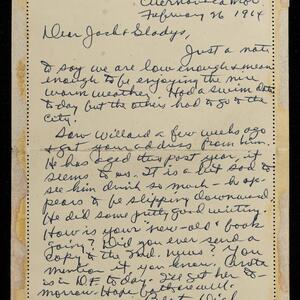 Cuernavaca Mor.
February 26 1964
Dear Jack & Gladys,
Just a note
to say we are low enough & mean
enough to be enjoying the nice
warm weather. Had a swim
to day but the others had to go to the
city.
Saw Willard a few weeks ago
& got your address from him.
He has aged this past year, it
seems to us. It is a bit sad to
see him drink so much – he ap-
pears to be slipping downward.
He did some pretty good writing.
How is your "new-old" book
going? Did you ever send a
copy to the "News"? You
mention it you know.
is in D.F. to day. I'll get her to-
morrow. Hope